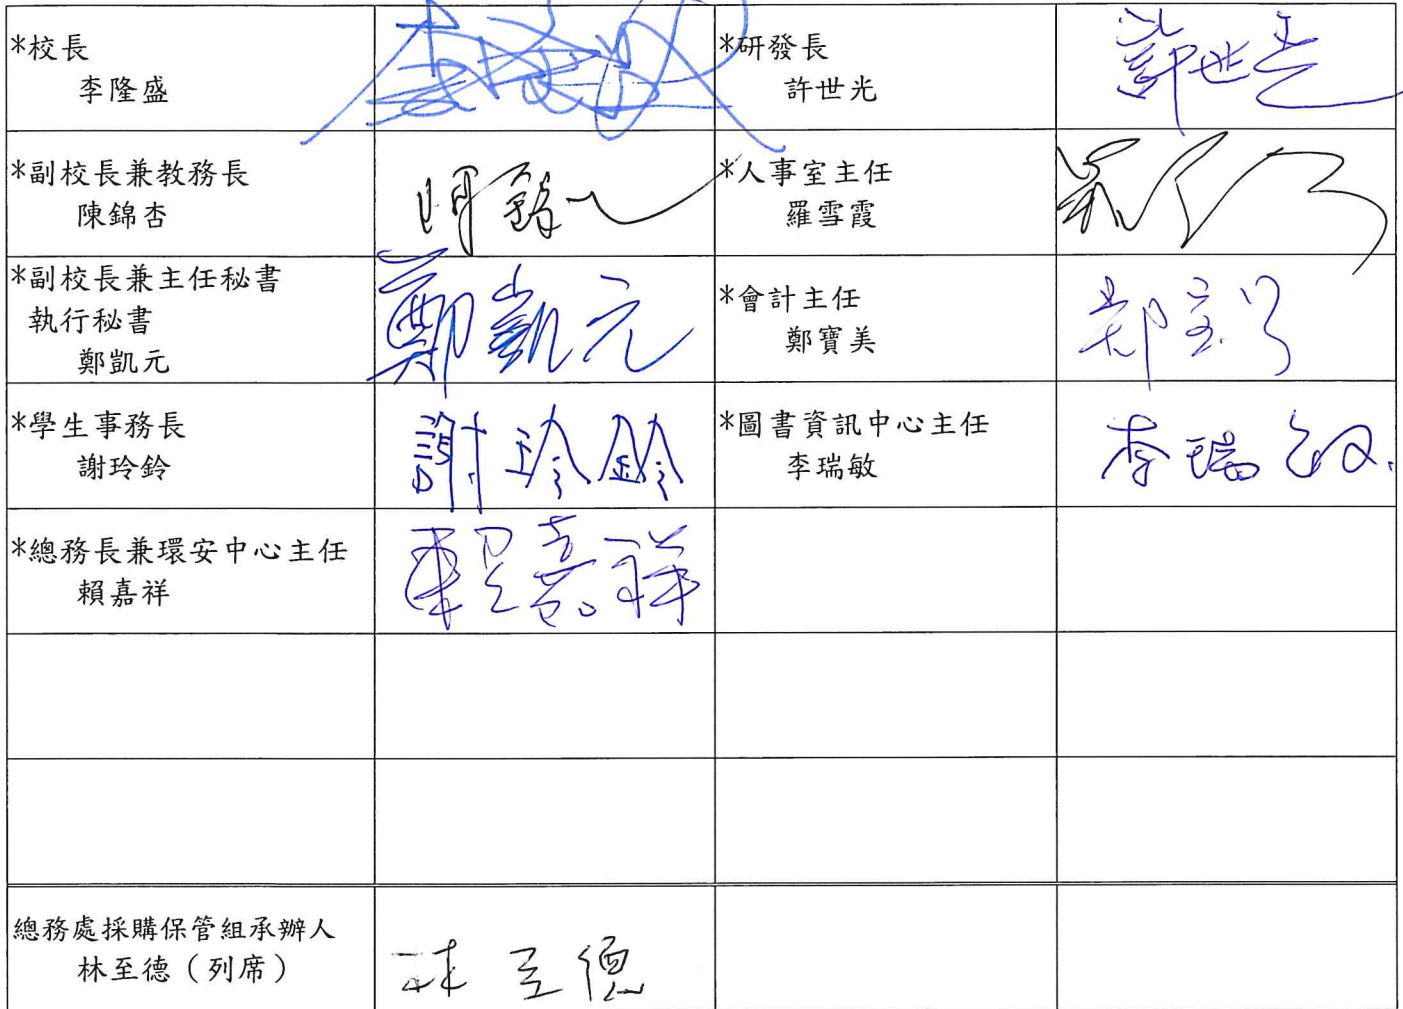 *校長
李隆盛
*研發長
許世光
許世光
*副校長兼教務長
陳錦杏
*人事室主任
羅雪霞
*副校長兼主任秘書
執行秘書
鄭凱元
鄭凱元
*會計主任
鄭寶美
*學生事務長
謝玲鈴
謝玲鈴
*圖書資訊中心主任
李瑞敏
李瑞敏
*總務長兼環安中心主任
賴嘉祥
賴嘉祥
總務處採購保管組承辦人
林至德（列席）
林至德